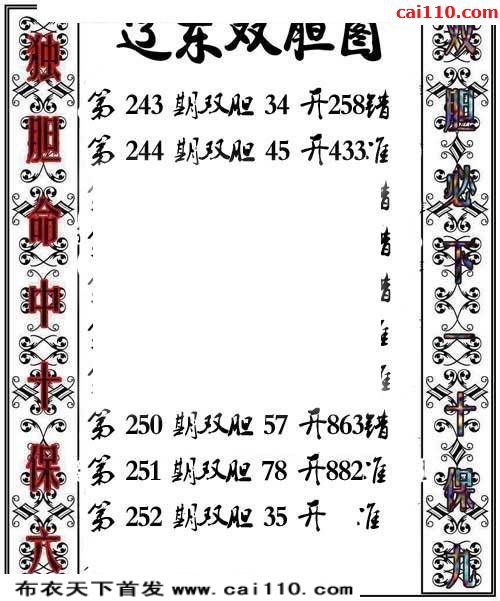 cai110.com
辽东双胆图
独胆命中十保六
双胆必下一十保九
第 243 期双胆 34 开258错
第 244 期双胆 45 开433准
错
错
错
准
准
第 250 期双胆 57 开863错
第 251 期双胆 78 开882准
第 252 期双胆 35 开 准
布衣天下首发 www.cai110.com